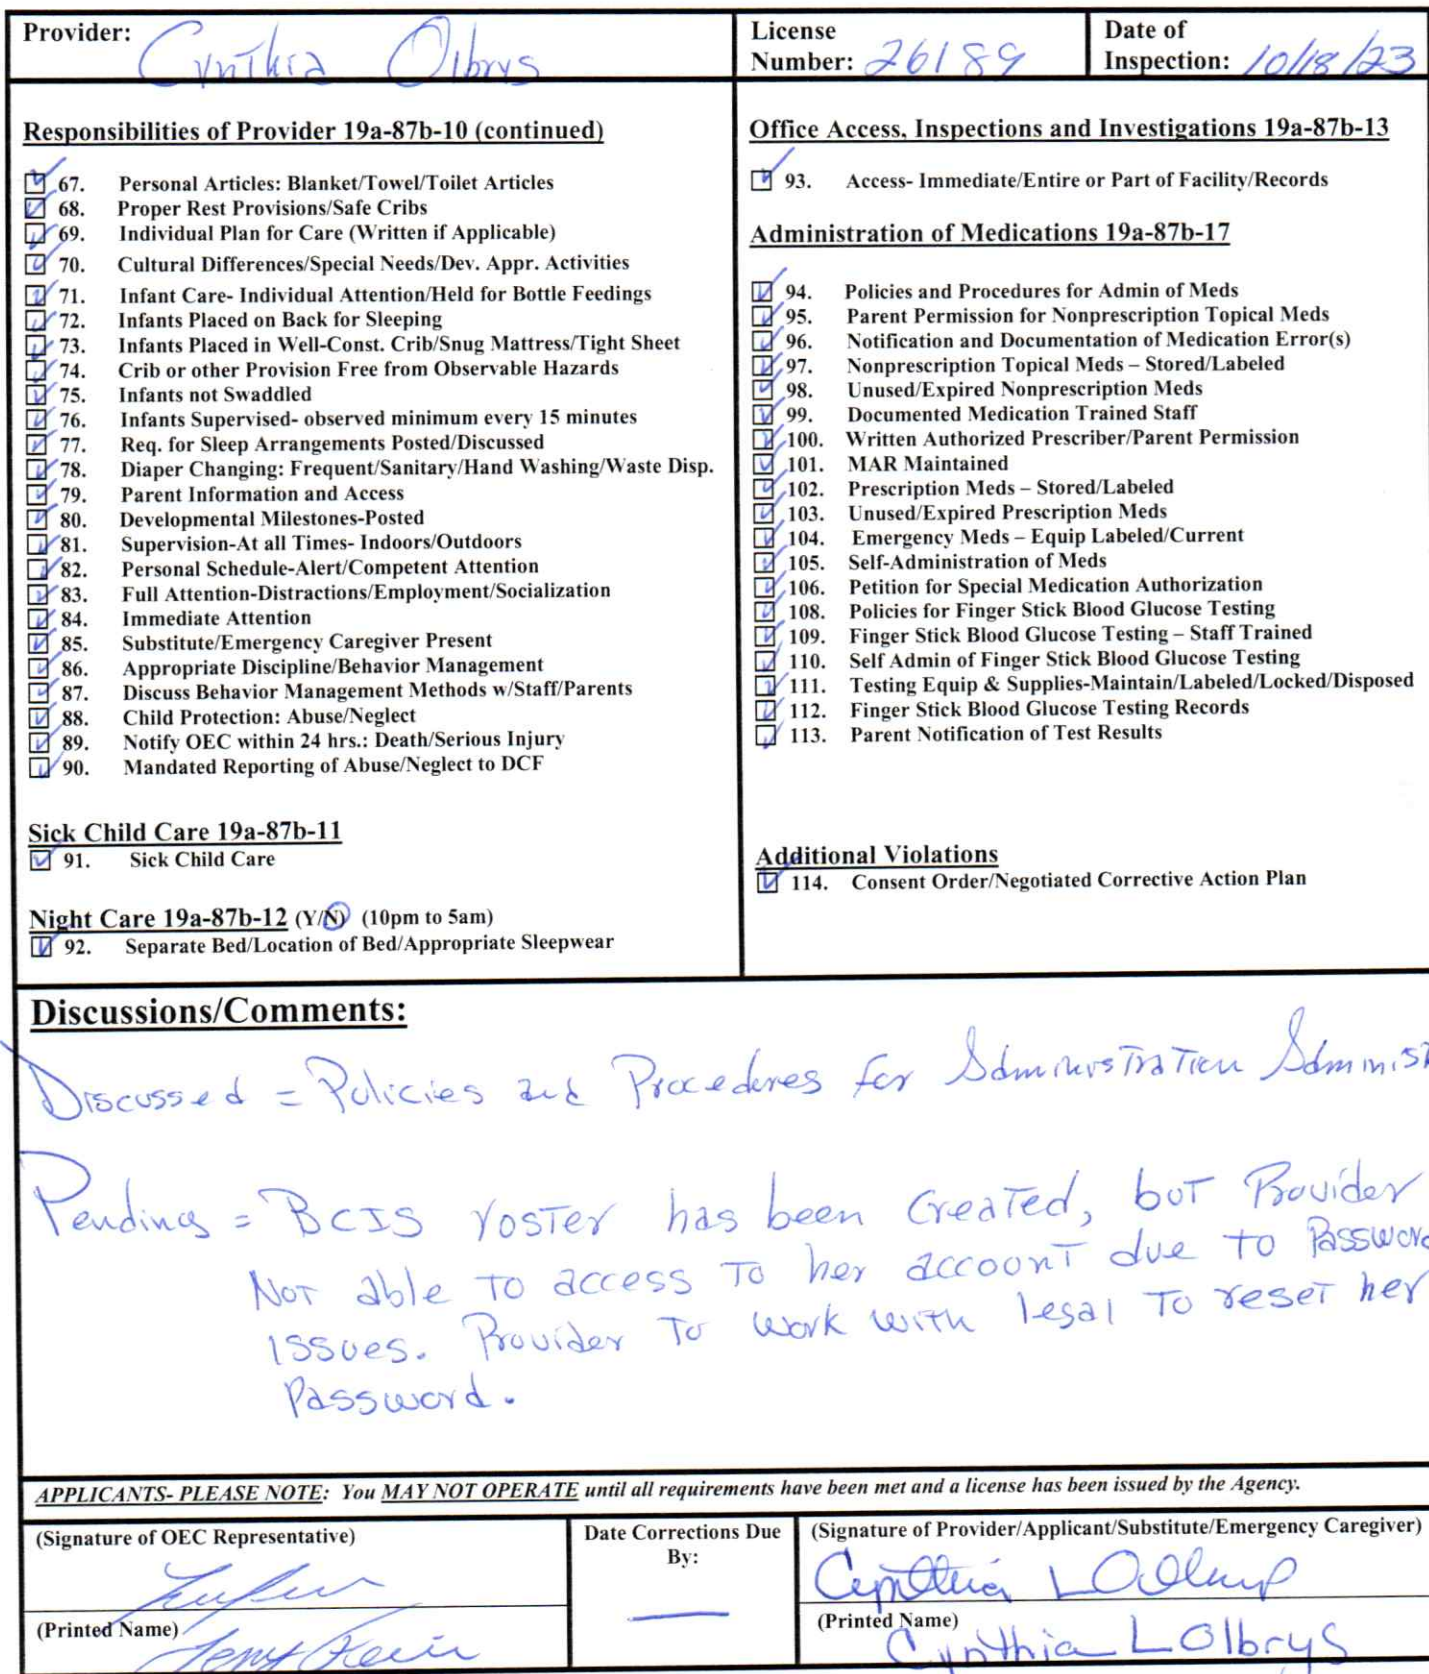 Provider: Cynthia Olbrys
License Number: 26189
Date of Inspection: 10/18/23
Responsibilities of Provider 19a-87b-10 (continued)
67. Personal Articles: Blanket/Towel/Toilet Articles
68. Proper Rest Provisions/Safe Cribs
69. Individual Plan for Care (Written if Applicable)
70. Cultural Differences/Special Needs/Dev. Appr. Activities
71. Infant Care- Individual Attention/Held for Bottle Feedings
72. Infants Placed on Back for Sleeping
73. Infants Placed in Well-Const. Crib/Snug Mattress/Tight Sheet
74. Crib or other Provision Free from Observable Hazards
75. Infants not Swaddled
76. Infants Supervised- observed minimum every 15 minutes
77. Req. for Sleep Arrangements Posted/Discussed
78. Diaper Changing: Frequent/Sanitary/Hand Washing/Waste Disp.
79. Parent Information and Access
80. Developmental Milestones-Posted
81. Supervision-At all Times- Indoors/Outdoors
82. Personal Schedule-Alert/Competent Attention
83. Full Attention-Distractions/Employment/Socialization
84. Immediate Attention
85. Substitute/Emergency Caregiver Present
86. Appropriate Discipline/Behavior Management
87. Discuss Behavior Management Methods w/Staff/Parents
88. Child Protection: Abuse/Neglect
89. Notify OEC within 24 hrs.: Death/Serious Injury
90. Mandated Reporting of Abuse/Neglect to DCF
Sick Child Care 19a-87b-11
91. Sick Child Care
Night Care 19a-87b-12 (Y/N) (10pm to 5am)
92. Separate Bed/Location of Bed/Appropriate Sleepwear
Office Access, Inspections and Investigations 19a-87b-13
93. Access- Immediate/Entire or Part of Facility/Records
Administration of Medications 19a-87b-17
94. Policies and Procedures for Admin of Meds
95. Parent Permission for Nonprescription Topical Meds
96. Notification and Documentation of Medication Error(s)
97. Nonprescription Topical Meds – Stored/Labeled
98. Unused/Expired Nonprescription Meds
99. Documented Medication Trained Staff
100. Written Authorized Prescriber/Parent Permission
101. MAR Maintained
102. Prescription Meds – Stored/Labeled
103. Unused/Expired Prescription Meds
104. Emergency Meds – Equip Labeled/Current
105. Self-Administration of Meds
106. Petition for Special Medication Authorization
108. Policies for Finger Stick Blood Glucose Testing
109. Finger Stick Blood Glucose Testing – Staff Trained
110. Self Admin of Finger Stick Blood Glucose Testing
111. Testing Equip & Supplies-Maintain/Labeled/Locked/Disposed
112. Finger Stick Blood Glucose Testing Records
113. Parent Notification of Test Results
Additional Violations
114. Consent Order/Negotiated Corrective Action Plan
Discussions/Comments:
Discussed = Policies and Procedures for Administration Administ
Pending = BCIS roster has been created, but Provider
Not able to access to her account due to Password
issues. Provider to work with legal to reset her
Password.
APPLICANTS- PLEASE NOTE: You MAY NOT OPERATE until all requirements have been met and a license has been issued by the Agency.
(Signature of OEC Representative)
(Printed Name)
Date Corrections Due By:
(Signature of Provider/Applicant/Substitute/Emergency Caregiver)
Cynthia L Olbrys
(Printed Name)
Cynthia L Olbrys